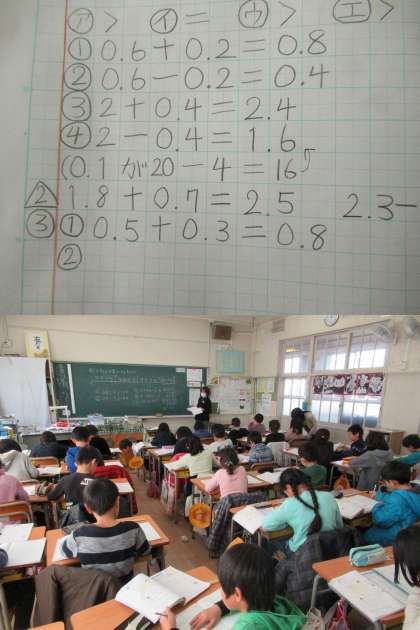 ㋐> ㋑= ㋒> ㋓>
① 0.6+0.2=0.8
② 0.6-0.2=0.4
③ 2+0.4=2.4
④ 2-0.4=1.6
(0.1が20-4=16
2 1.8+0.7=2.5 2.3-
③ ① 0.5+0.3=0.8
②